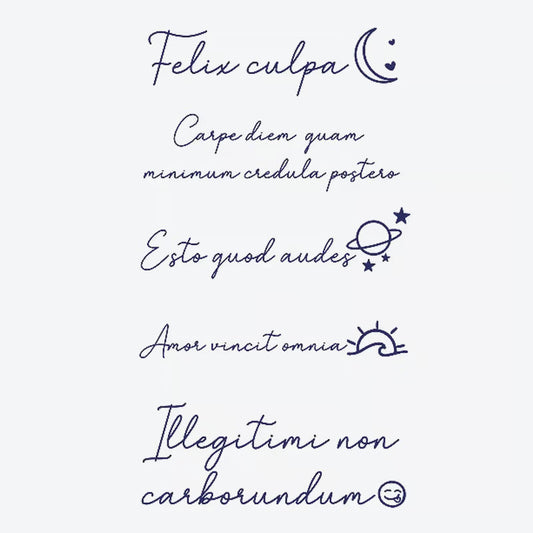 Felix culpa
Carpe diem quam
minimum credula postero
Esto quod audes
Amor vincit omnia
Illegitimi non
carborundum